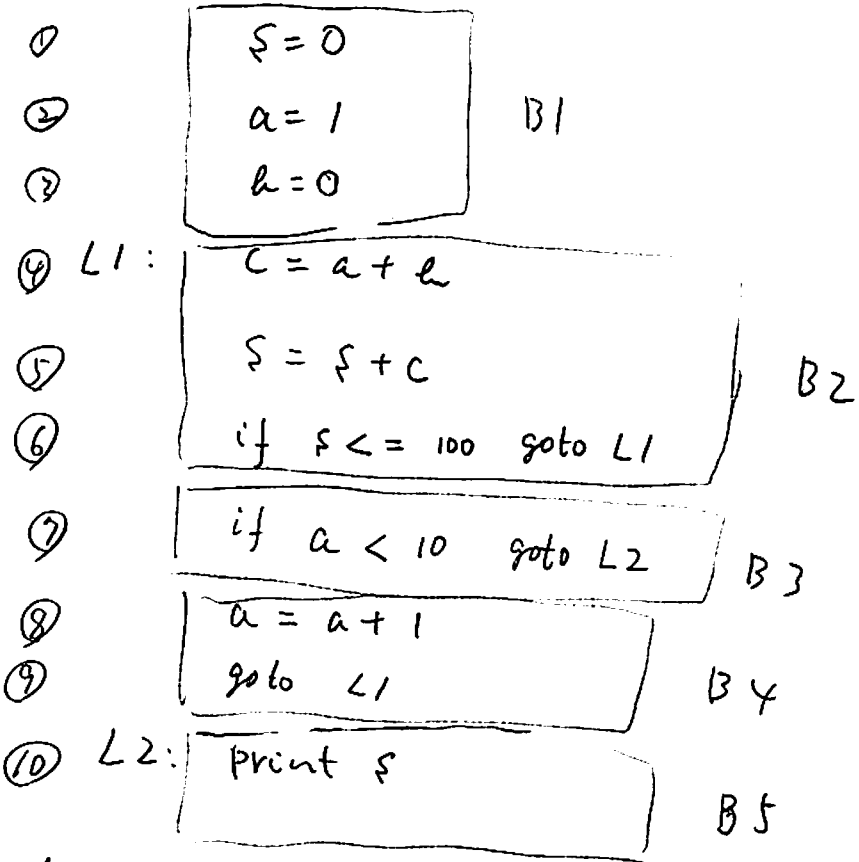 ① s = 0
② a = 1 B1
③ b = 0
④ L1: c = a + b
⑤ s = s + c B2
⑥ if s <= 100 goto L1
⑦ if a < 10 goto L2 B3
⑧ a = a + 1
⑨ goto L1 B4
⑩ L2: print s
B5